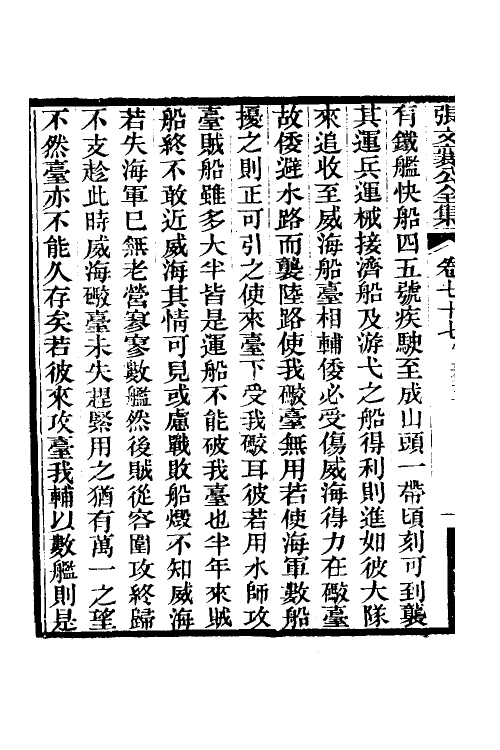 張文襄公全集 卷七十七
有鐵艦快船四五號疾駛至成山頭一帶頃刻可到襲
其運兵運械接濟船及游弋之船得利則進如彼大隊
來追收至威海船臺相輔倭必受傷威海得力在礮臺
故倭避水路而襲陸路使我礮臺無用若使海軍數船
擾之則正可引之使來臺下受我礮耳彼若用水師攻
臺賊船雖多大半皆是運船不能破我臺也半年來賊
船終不敢近威海其情可見或慮戰敗船燬不知威海
若失海軍已無老營寥寥數艦然後賊從容圍攻終歸
不支趁此時威海礮臺未失趕緊用之猶有萬一之望
不然臺亦不能久存矣若彼來攻臺我輔以數艦則是